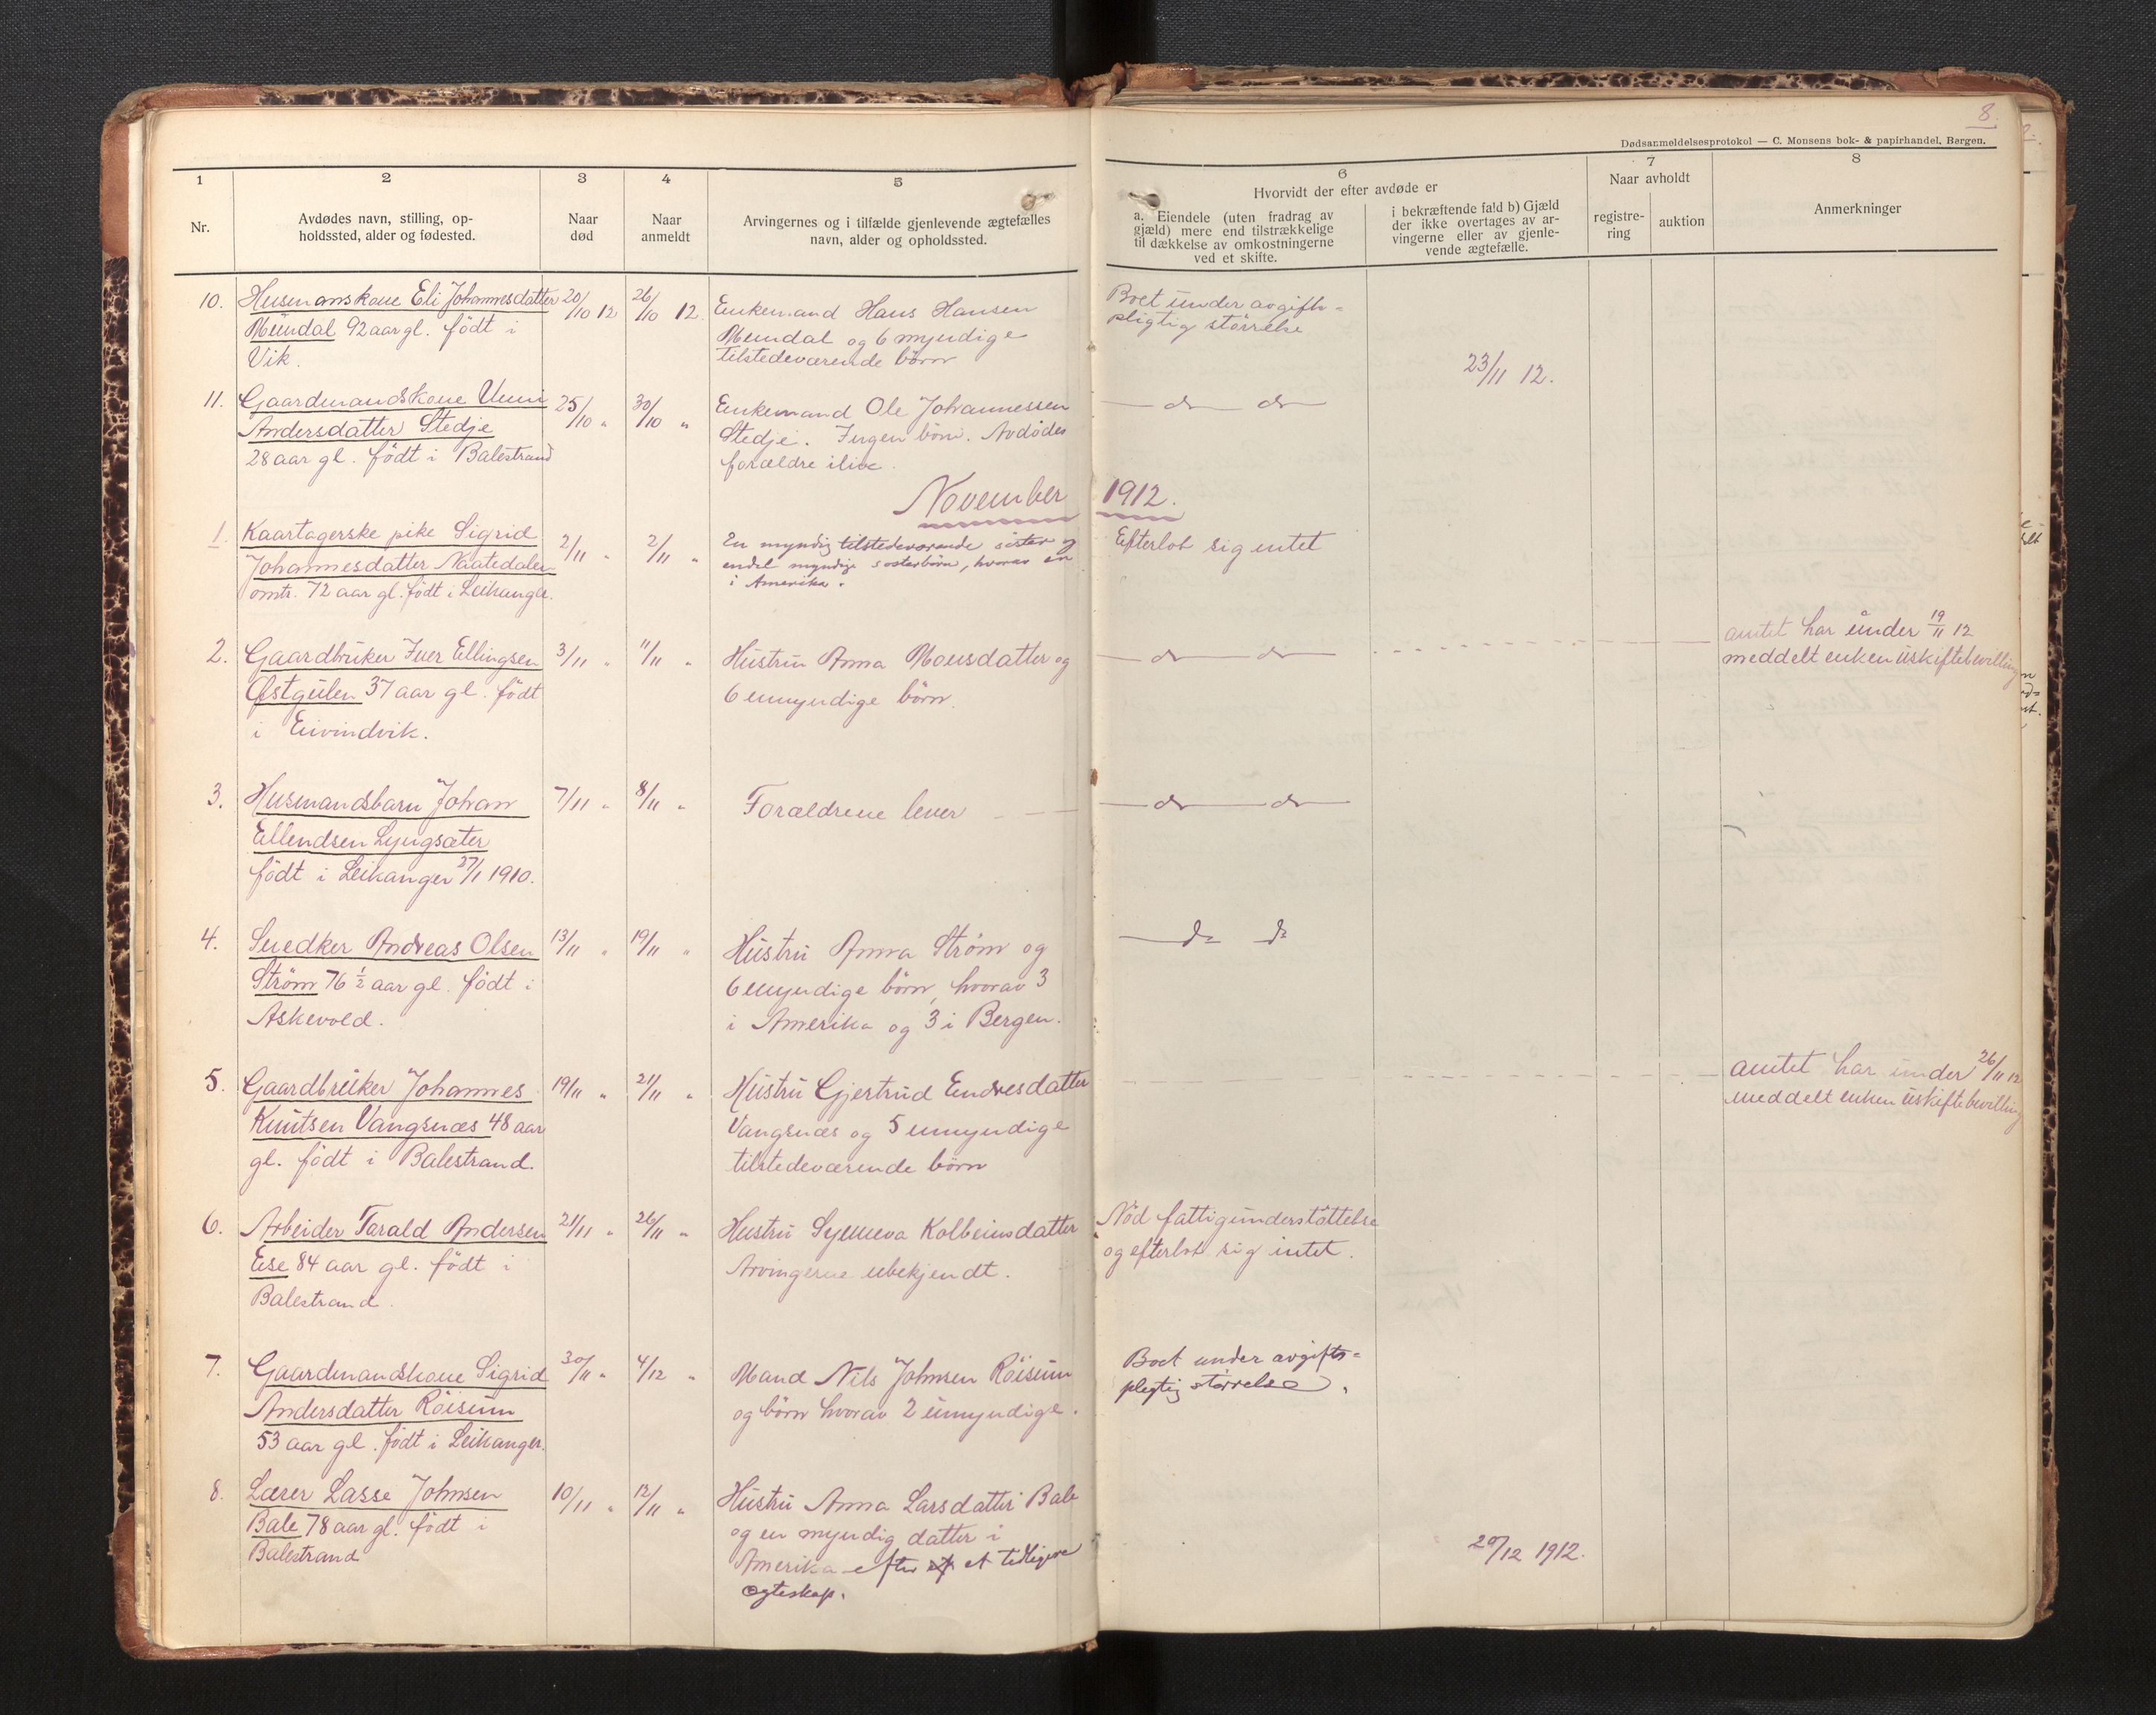 8.
Dødsanmeldelsesprotokol — C. Monsens bok- & papirhandel, Bergen.
1
2
3
4
5
6
7
8
Nr.
Avdødes navn, stilling, op-
holdssted, alder og fødested.
Naar
død
Naar
anmeldt
Arvingernes og i tilfælde gjenlevende ægtefælles
navn, alder og opholdssted.
Hvorvidt der efter avdøde er
a. Eiendele (uten fradrag av
gjæld) mere end tilstrækkelige
til dækkelse av omkostningerne
ved et skifte.
i bekræftende fald b) Gjæld
der ikke overtages av ar-
vingerne eller av gjenle-
vende ægtefælle.
Naar avholdt
registre-
ring
auktion
Anmerkninger
10.
Husmanskone Eli Johannesdatter
Mundal 92 aar gl. født i
Vik.
20/10 12
26/10 12.
Enkemand Hans Hansen
Mundal og 6 myndige
tilstedeværende børn
Boet under avgifts-
pligtig størrelse
23/11 12.
11.
Gaardmandskone Unni
Andersdatter Stedje
28 aar gl. født i Balestrand
25/10 "
30/10 "
Enkemand Ole Johannessen
Stedje. Ingen børn. Avdødes
forældre ilive.
— do — do —
November 1912.
1.
Kaartagerske pike Sigrid
Johannesdatter Naatedalen
omtr. 72 aar gl. født i Leikanger.
2/11 "
2/11 "
En myndig tilstedeværende søster og
endel myndige søsterbørn, hvorav en
i Amerika.
Efterlot sig intet
2.
Gaardbruker Iver Ellingsen
Østgulen 37 aar gl. født
i Eivindvik.
3/11 "
11/11 "
Hustru Anna Monsdatter og
6 umyndige børn.
— do — do —
amtet har under 19/11 12
meddelt enken uskiftebevilling
3.
Husmandsbarn Johan
Ellendsen Lyngsæter
født i Leikanger 27/1 1910.
7/11 "
8/11 "
Forældrene lever
— do — do —
4.
Snedker Andreas Olsen
Strøm 76 1/2 aar gl. født i
Askevold.
13/11 "
19/11 "
Hustru Anna Strøm og
6 myndige børn, hvorav 3
i Amerika og 3 i Bergen.
— do do
5.
Gaardbruker Johannes
Knutsen Vangsnæs 48 aar
gl. født i Balestrand.
19/11 "
21/11 "
Hustru Gjertrud Endresdatter
Vangsnæs og 5 umyndige
tilstedeværende børn
amtet har under 26/11 12
meddelt enken uskiftebevilling
6.
Arbeider Tarald Andersen
Ese 84 aar gl. født i
Balestrand.
21/11 "
26/11 "
Hustru Synneva Kolbeinsdatter
Arvingerne ubekjendt.
Nød fattigunderstøttelse
og efterlot sig intet.
7.
Gaardmandskone Sigrid
Andersdatter Røisum
53 aar gl. født i Leikanger.
30/11 "
4/12 "
Mand Nils Johnsen Røisum
og børn hvorav 2 umyndige.
Boet under avgifts-
pligtig størrelse.
8.
Lærer Lasse Johnsen
Bale 78 aar gl. født i
Balestrand
10/11 "
12/11 "
Hustru Anna Larsdatter Bale
og en myndig datter i
Amerika efter et tidligere
egteskap.
20/12 1912.